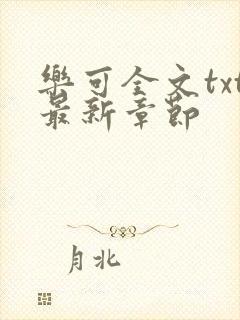 樂可全文txt
最新章節
月北